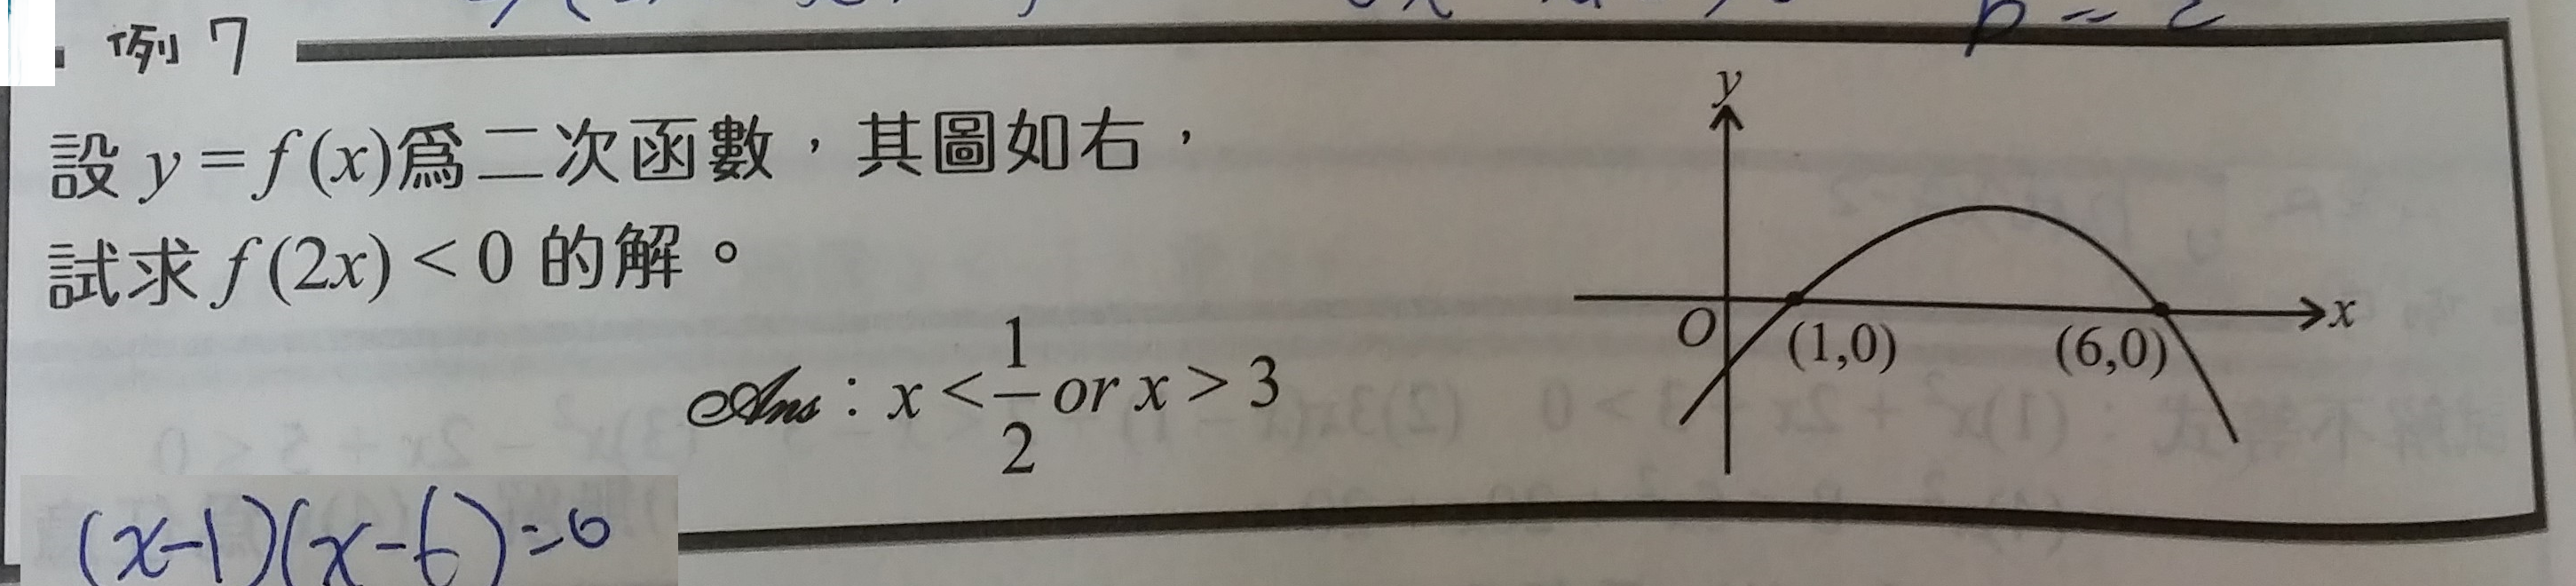 例 7
設 y = f(x)為二次函數，其圖如右，
試求 f(2x) < 0 的解。
Ans : x < 1/2 or x > 3
y
O
(1,0)
(6,0)
x
(x-1)(x-6)=0